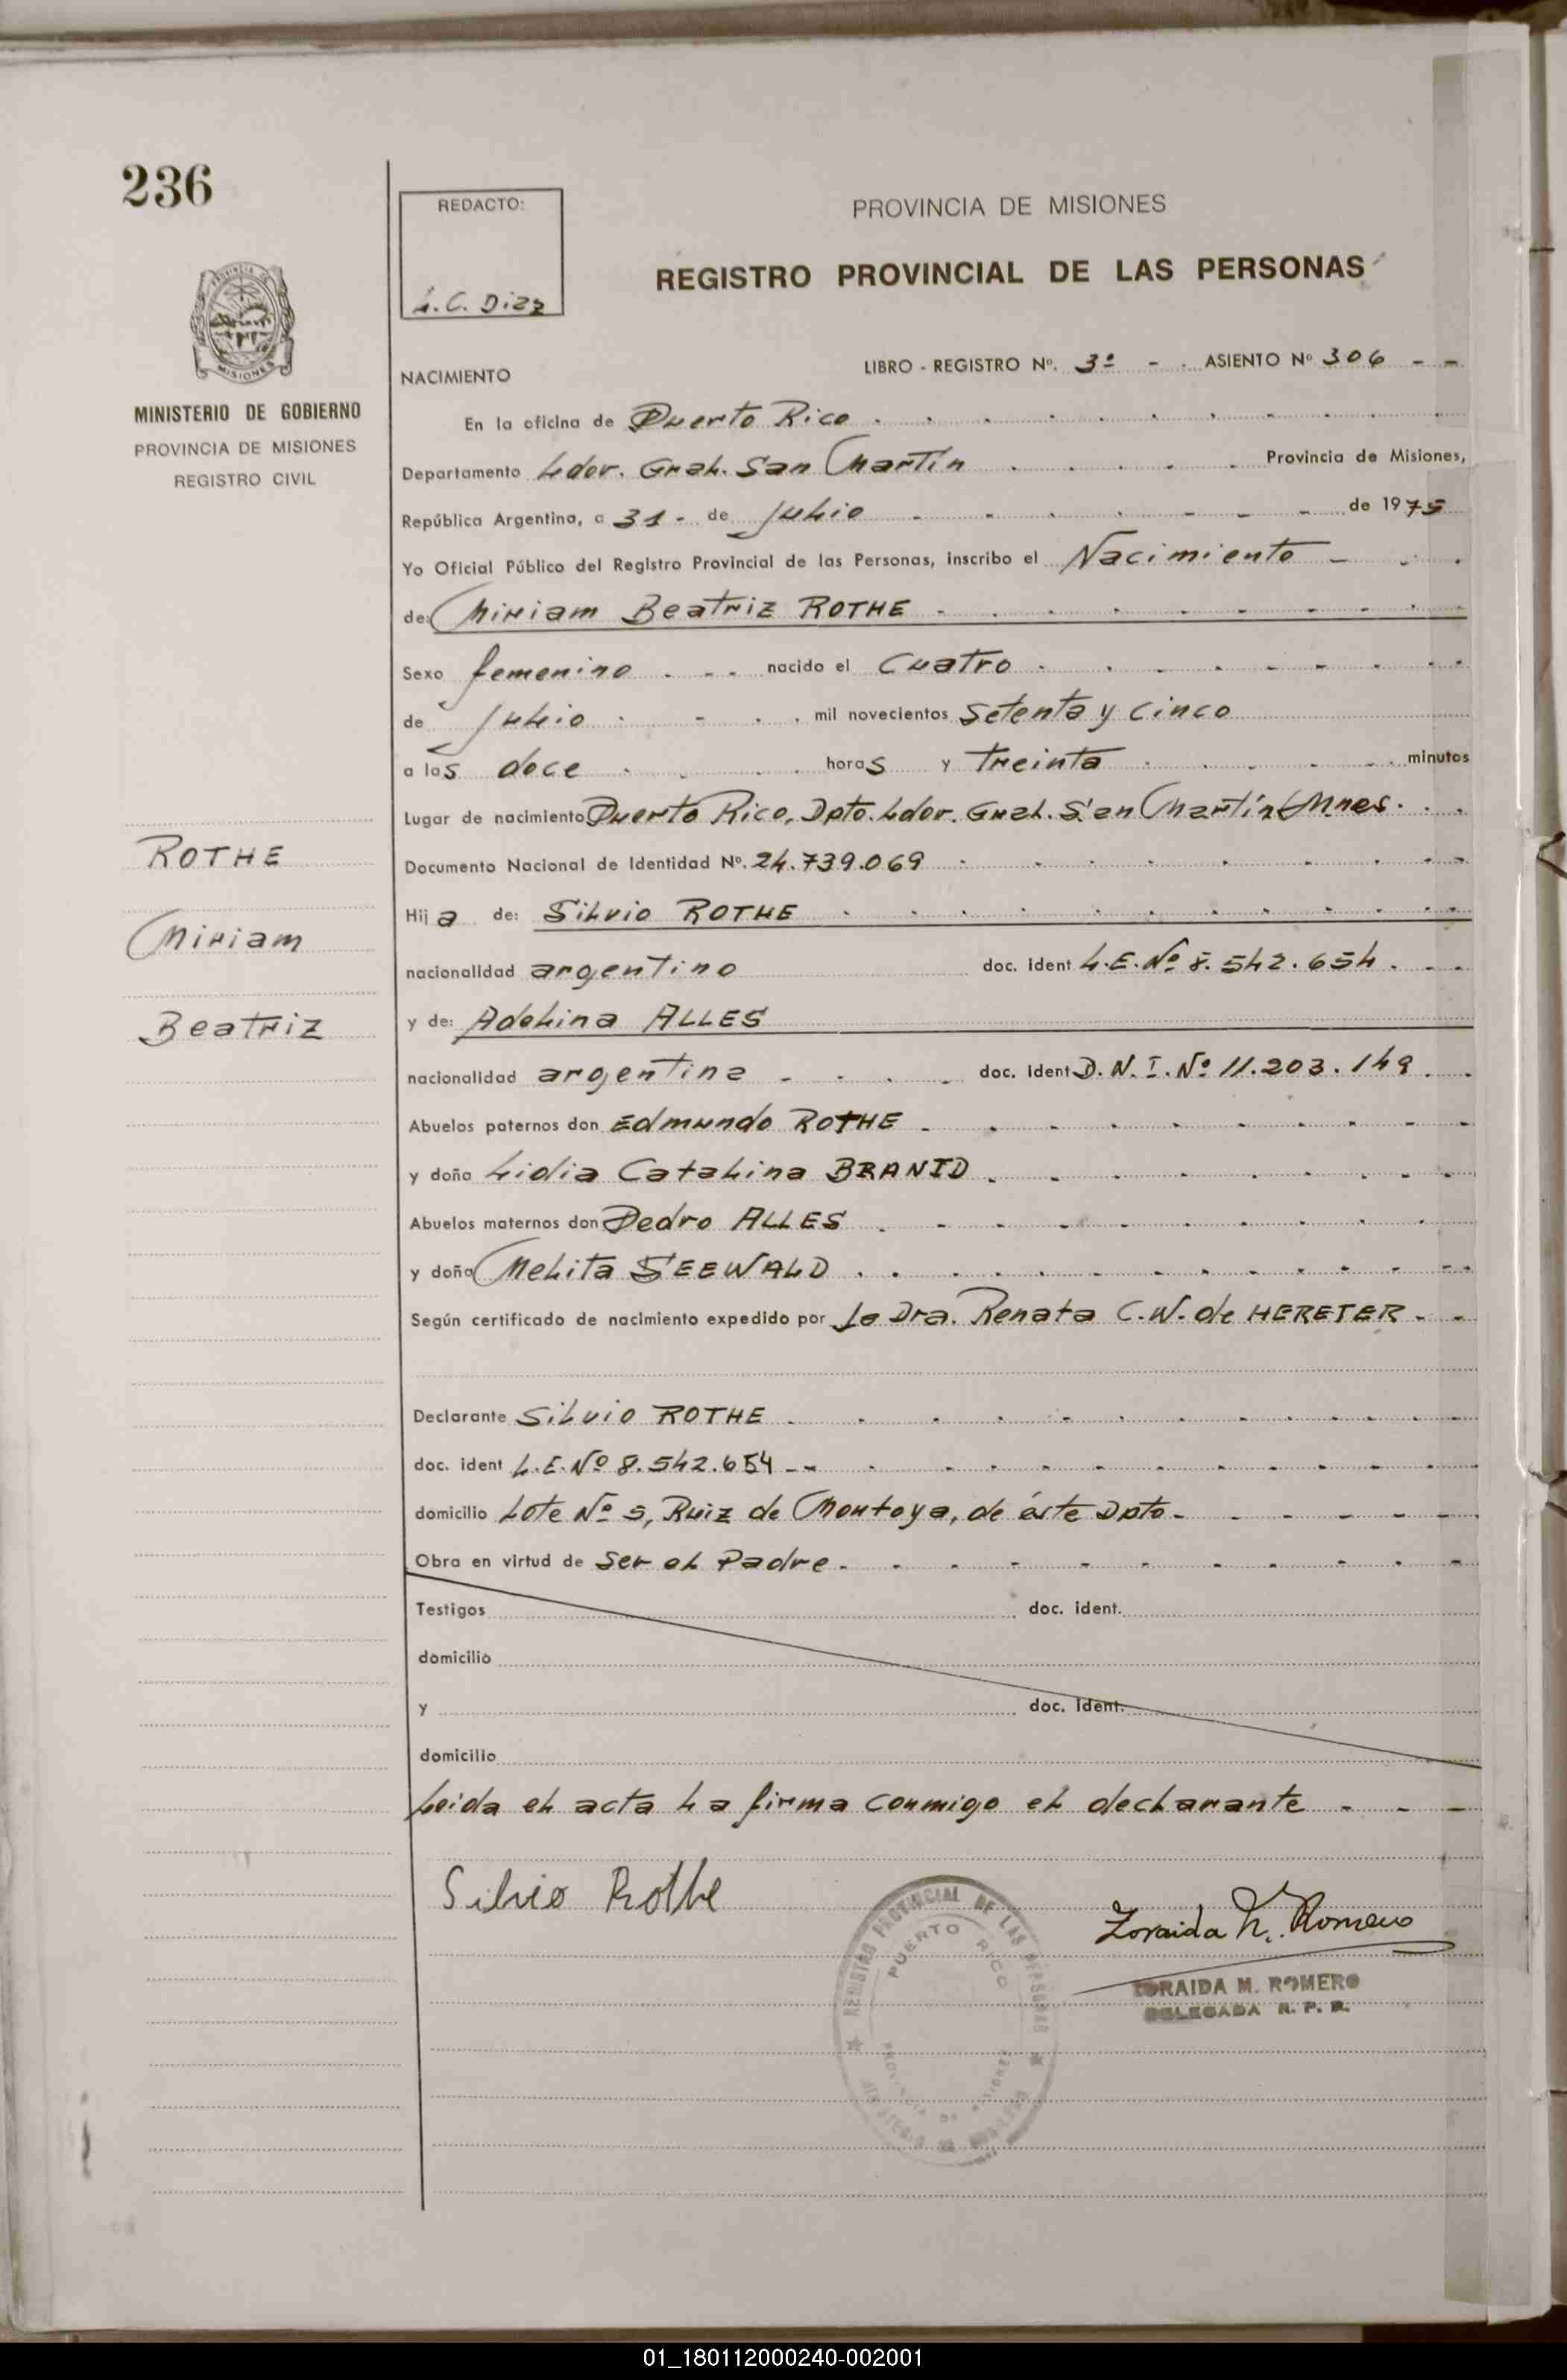 236
PROVINCIA DE MISIONES
MINISTERIO DE GOBIERNO
PROVINCIA DE MISIONES
REGISTRO CIVIL
REDACTO:
C. Diaz
PROVINCIA DE MISIONES
REGISTRO PROVINCIAL DE LAS PERSONAS
NACIMIENTO
LIBRO - REGISTRO Nº. 3º - . ASIENTO Nº 306 - -
En la oficina de Puerto Rico
Departamento Ldor. Gral. San Martín Provincia de Misiones,
República Argentina, a 31 - de Julio de 1975
Yo Oficial Público del Registro Provincial de las Personas, inscribo el Nacimiento
de: Miriam Beatriz ROTHE
Sexo femenino nacido el Cuatro
de Julio mil novecientos Setenta y Cinco
a las doce horas y Treinta minutos
Lugar de nacimiento Puerto Rico, Dpto. Ldor. Gral. San Martín, Mnes.
ROTHE
Documento Nacional de Identidad Nº. 24.739.069
Hija de: Silvio ROTHE
Miriam
nacionalidad argentino doc. ident L.E. Nº 8.542.654.
Beatriz
y de: Adelina ALLES
nacionalidad argentina doc. ident D.N.I. Nº 11.203.149
Abuelos paternos don Edmundo ROTHE
y doña Lidia Catalina BRANID
Abuelos maternos don Pedro ALLES
y doña Melita SEEWALD
Según certificado de nacimiento expedido por la Dra. Renata C.W. de HERETER
Declarante Silvio ROTHE
doc. ident L.E. Nº 8.542.654 --
domicilio Lote Nº 5, Ruiz de Montoya, de éste Dpto.
Obra en virtud de Ser el Padre.
Testigos doc. ident.
domicilio
y doc. ident.
domicilio
Leida el acta la firma conmigo el declarante
Silvio Rothe
Zoraida M. Romero
ZORAIDA M. ROMERO
DELEGADA R. P. P.
REGISTRO PROVINCIAL DE LAS PERSONAS
PUERTO RICO
PROVINCIA DE MISIONES
MINISTERIO DE GOBIERNO
01_180112000240-002001